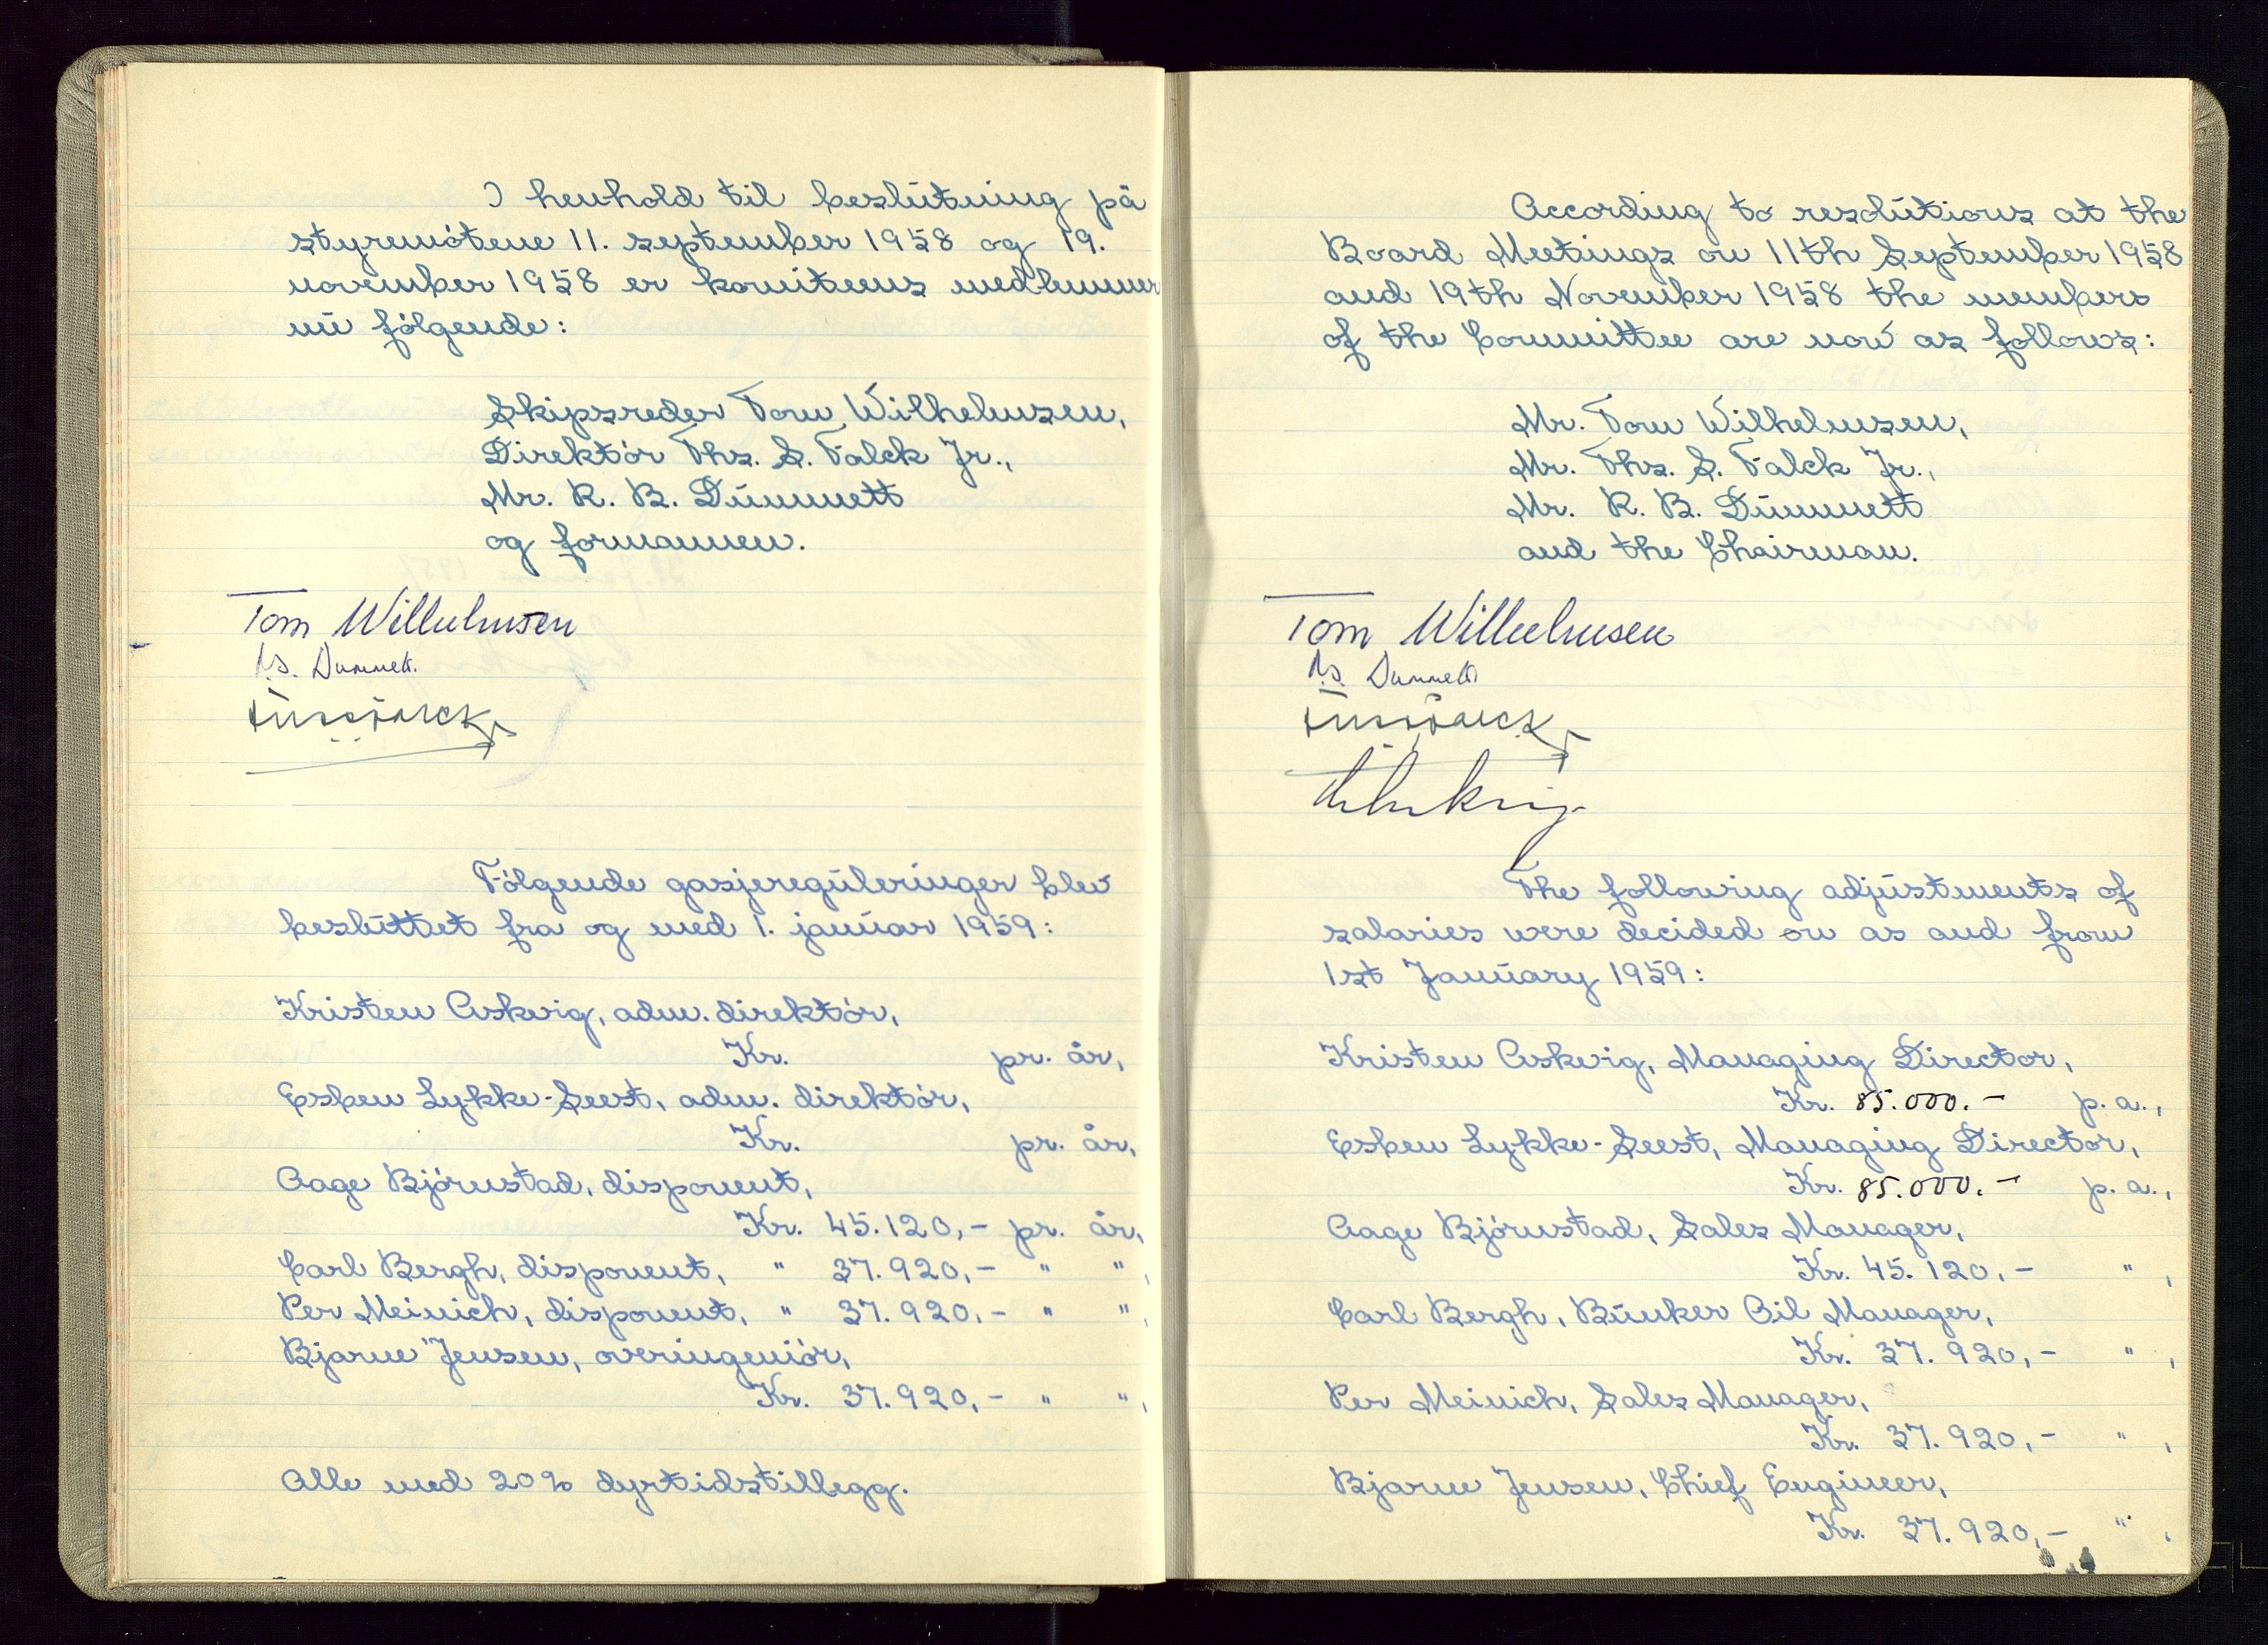 I henhold til beslutning på
styremötene 11. september 1958 og 19.
november 1958 er komiteens medlemmer
nu fölgende:
Skipsreder Tom Wilhelmsen,
Direktör Ths. S. Falck Jr.,
Mr. R. B. Dummett
og formannen.
Tom Wilhelmsen
Dummett.
Fölgende gasjereguleringer blev
besluttet fra og med 1. januar 1959:
Kristen Askvig, adm. direktör,
Kr. pr. år,
Esben Lykke-Seest, adm. direktör,
Kr. pr. år,
Aage Björnstad, disponent,
Kr. 45.120,- pr. år,
Carl Bergh, disponent, " 37.920,- " ",
Per Meinich, disponent, " 37.920,- " ",
Bjarne Jensen, overingeniör,
Kr. 37.920,- " ",
Alle med 20% dyrtidstillegg.
According to resolutions at the
Board Meetings on 11th September 1958
and 19th November 1958 the members
of the Committee are now as follows:
Mr. Tom Wilhelmsen,
Mr. Ths. S. Falck Jr.,
Mr. R. B. Dummett
and the Chairman.
Tom Wilhelmsen
Dummett
The following adjustments of
salaries were decided on as and from
1st January 1959:
Kristen Askvig, Managing Director,
Kr. 85.000.- p.a.,
Esben Lykke-Seest, Managing Director,
Kr. 85.000.- p.a.,
Aage Björnstad, Sales Manager,
Kr. 45.120,- ",
Carl Bergh, Bunker Oil Manager,
Kr. 37.920,- ",
Per Meinich, Sales Manager,
Kr. 37.920,- ",
Bjarne Jensen, Chief Engineer,
Kr. 37.920,- ".